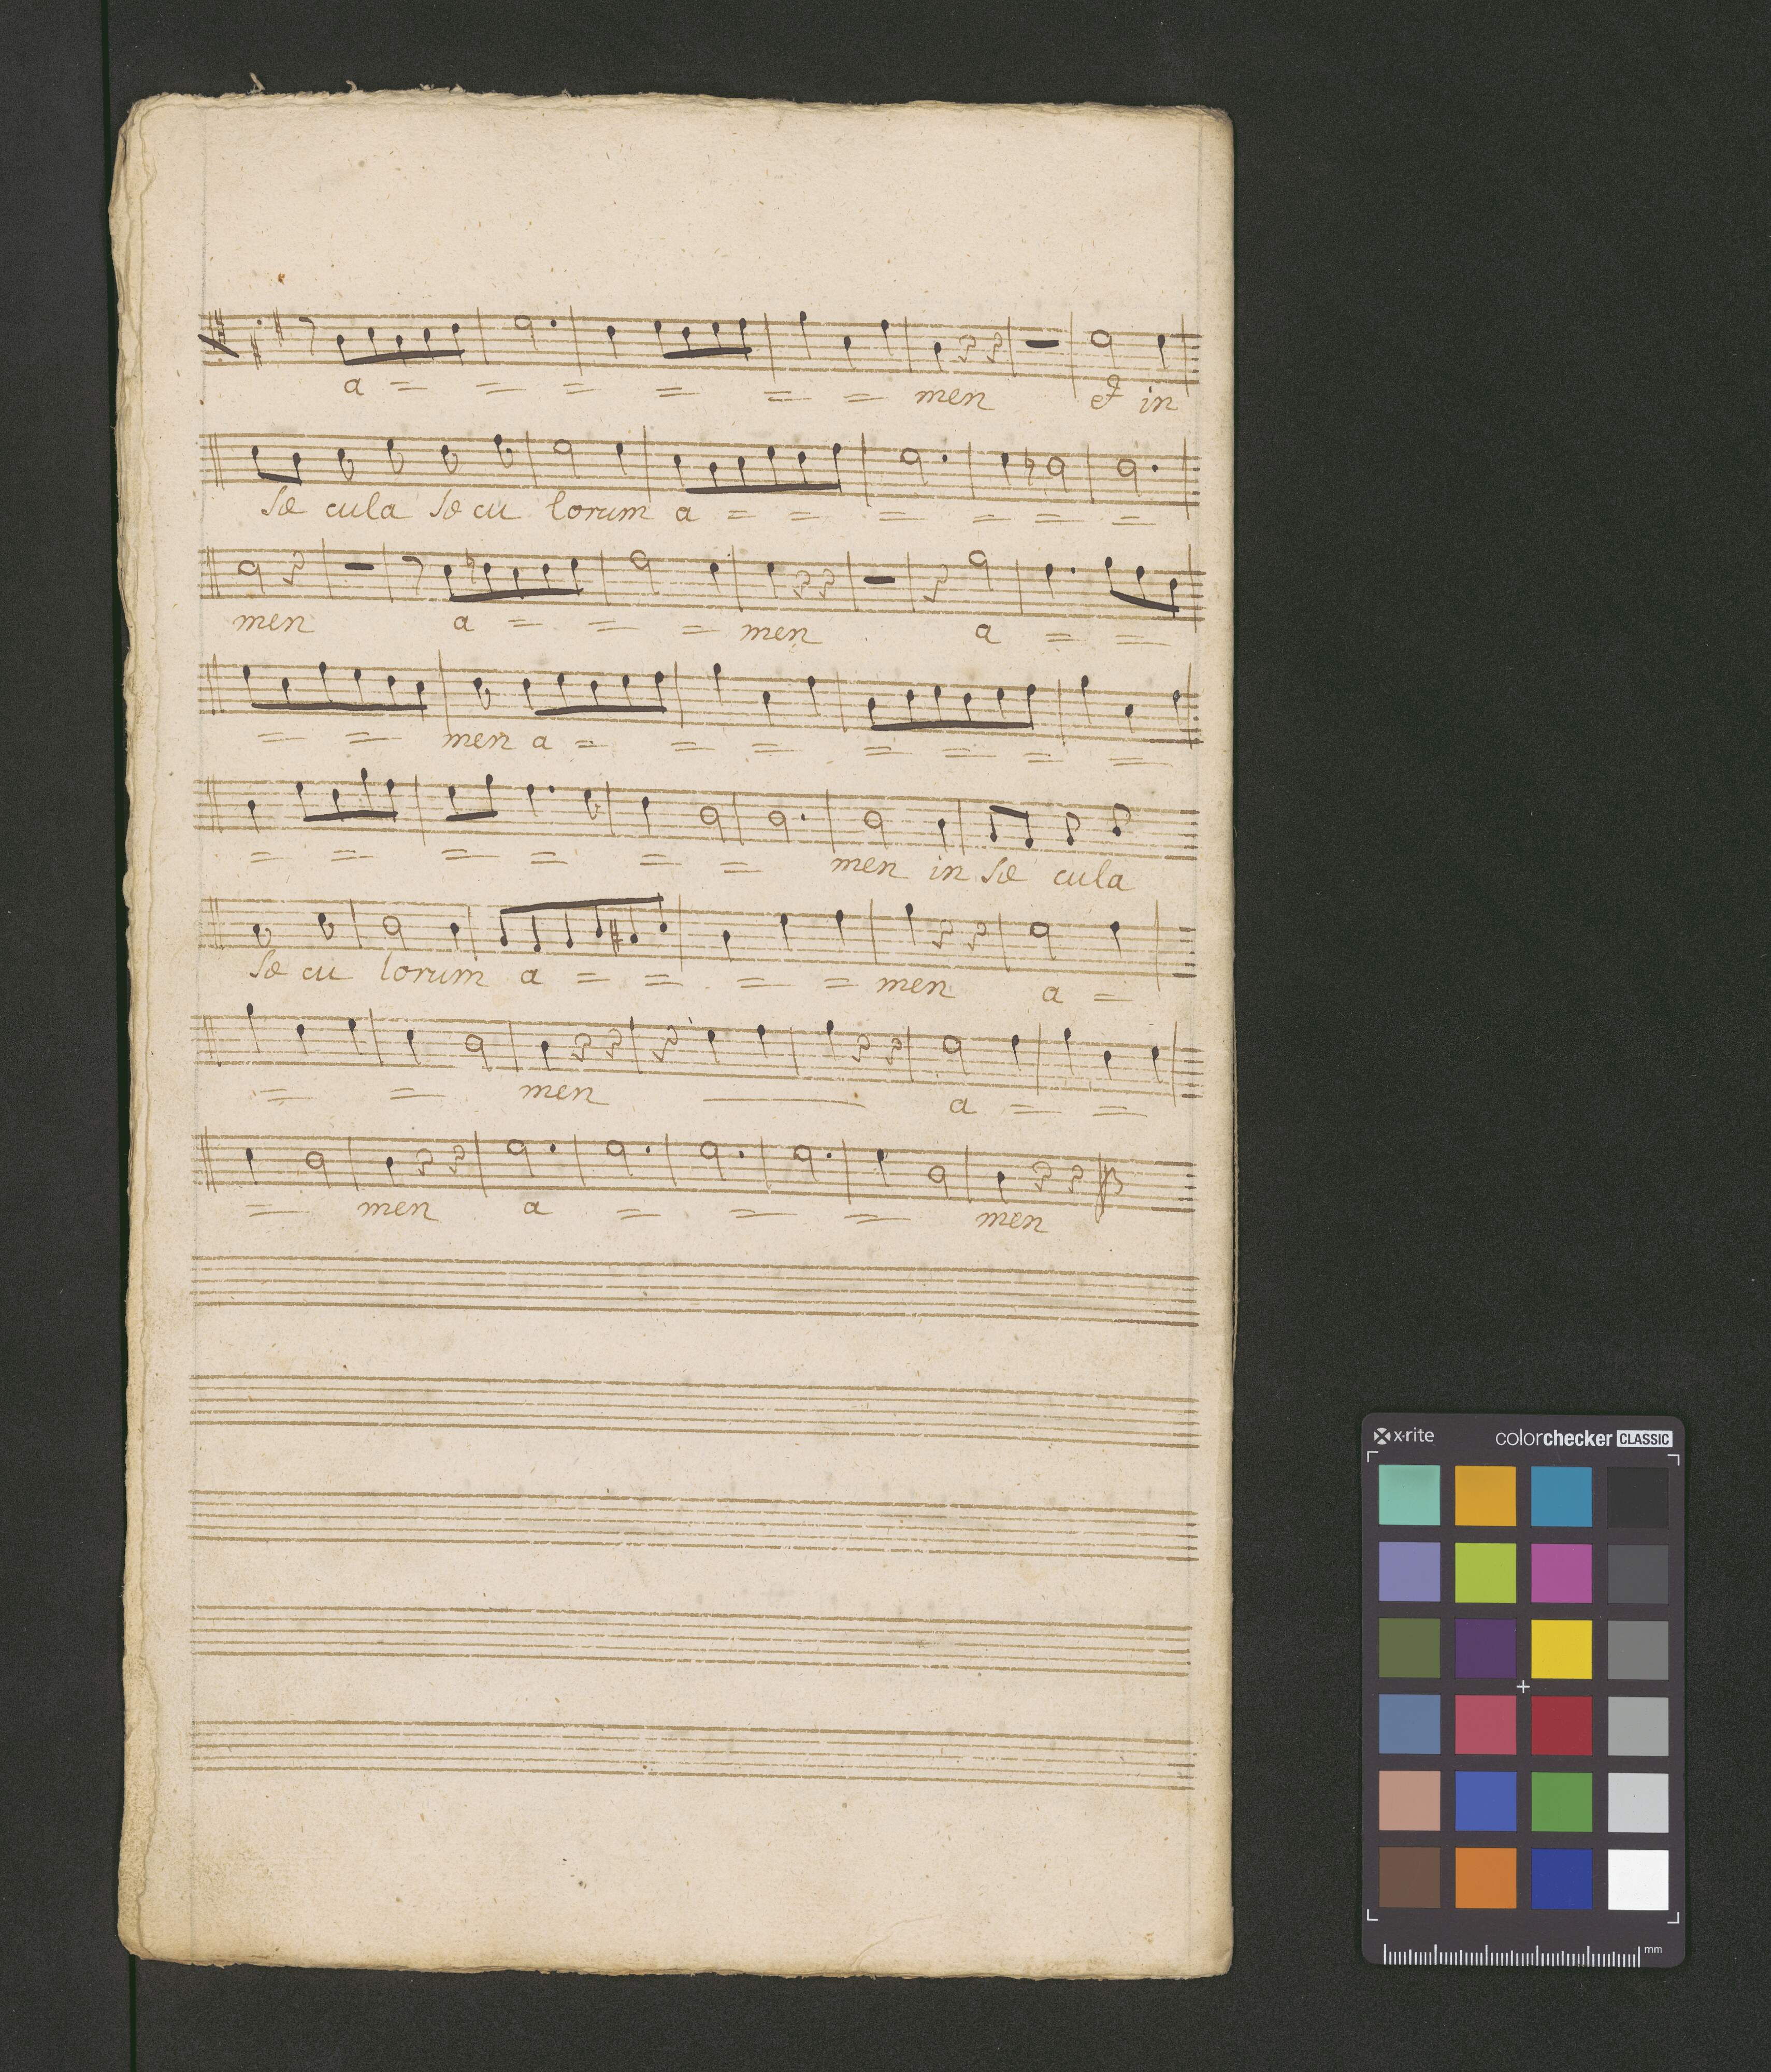 a = = = = = = men & in
sæ cula sæ cu lorum a = = = = = =
men a = = = men a = =
= = men a = = = = = = =
= = = = = = men in sæ cula
sæ cu lorum a = = = = men a =
= = men — a = =
= men a = = = men
x·rite colorchecker CLASSIC
mm